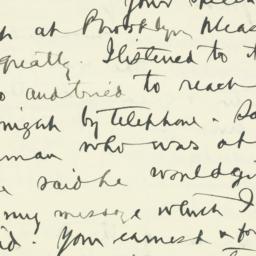 Your speech
at Brooklyn pleas
greatly. I listened to
and tried to reach
night by telephone. So
man who was at
said he would gi
my message which I
id. Your earnest & for